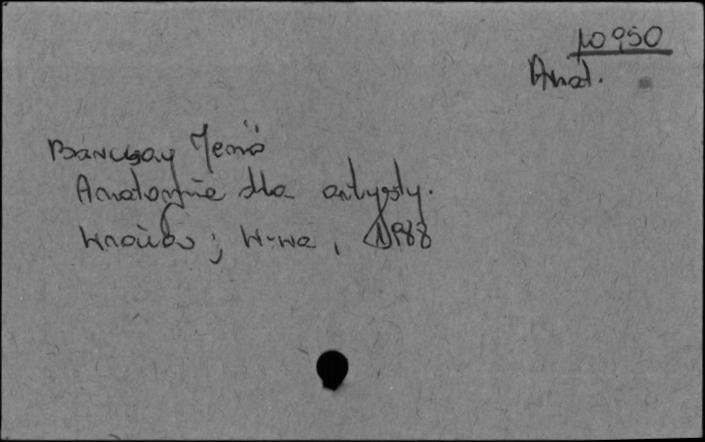 10950
Anat.
Barcsay Jenö
Anatomie dla artysty.
Kraków; W-wa, 1988